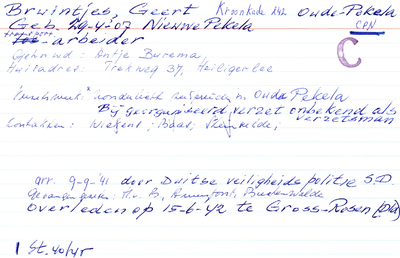 Bruintjes, Geert Kroonkade 242 Oude-Pekela
Geb. 29-4-07 Nieuwe Pekela CPN
-arbeider C
Gehuwd: Antje Burema
Huisadres: Trekweg 37, Heiligerlee
in Oude Pekela
Bij georganiseerd verzet onbekend als
verzetsman
Contacten:
arr. 9-9-'41 door Duitse veiligheids politie S.D.
Gevangenissen: H.v. B, Amersfoort, Buchenwalde
Overleden op 15-6-42 te Gross-Rosen (Dld)
1 St. 40/45